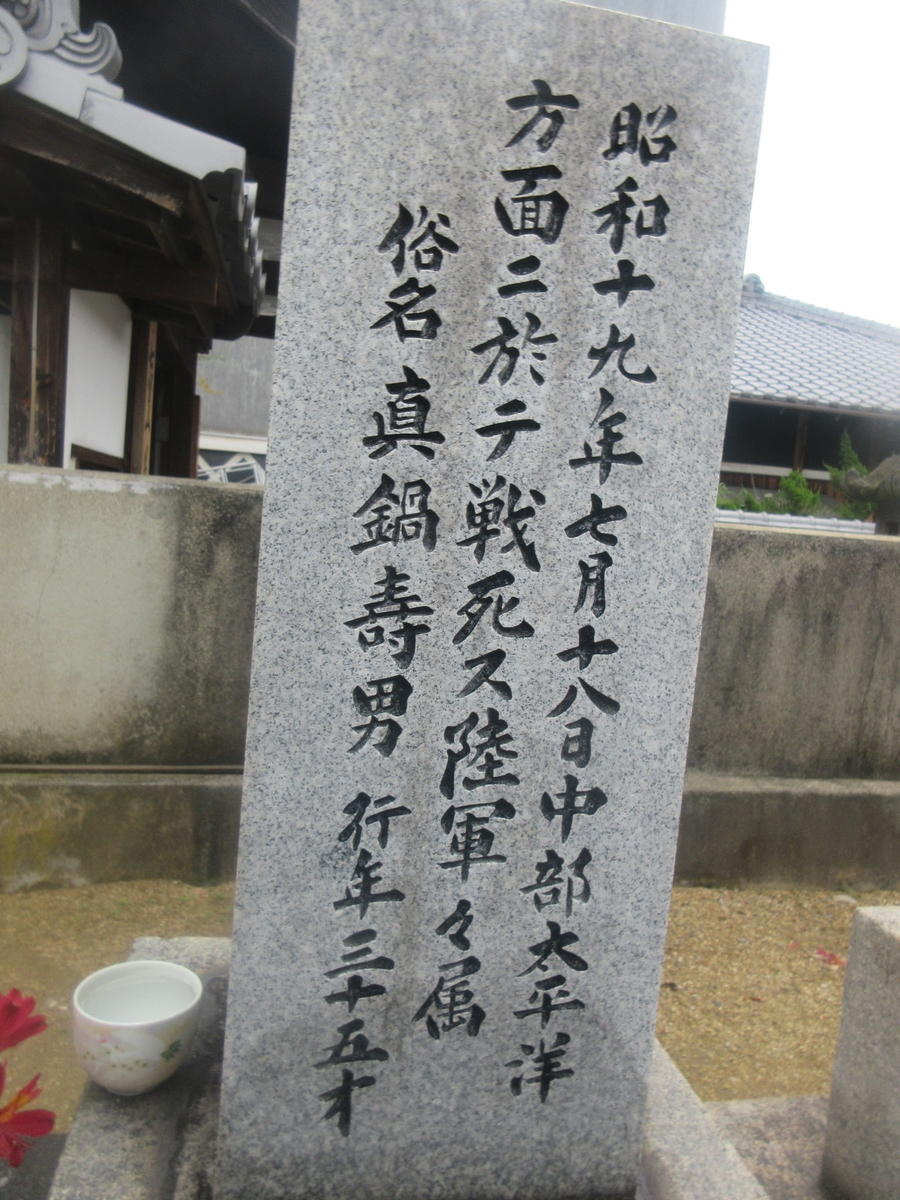 昭和十九年七月十八日中部太平洋
方面ニ於テ戦死ス陸軍々属
俗名 真鍋壽男 行年三十五才